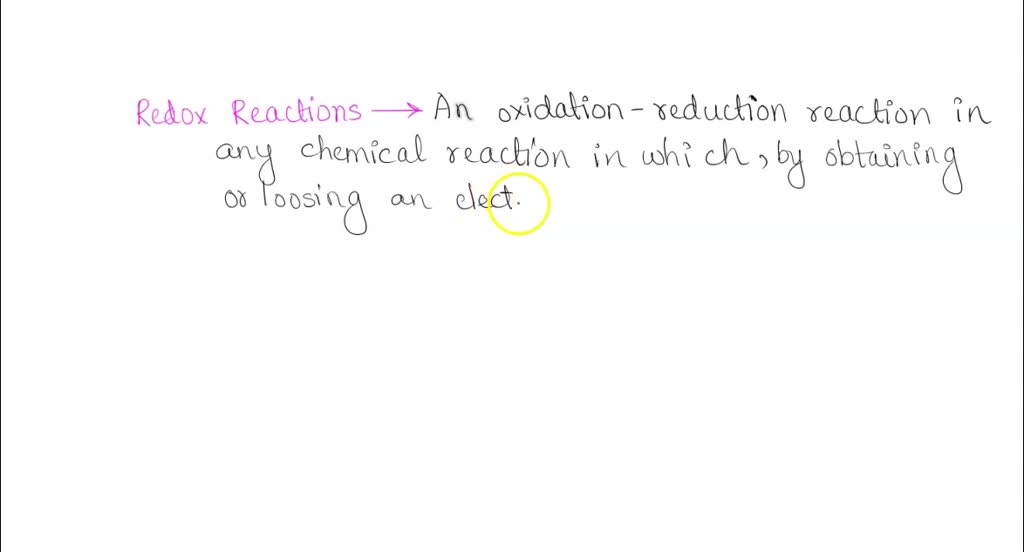 Redox Reactions → An oxidation-reduction reaction in
any chemical reaction in which, by obtaining
or loosing an elect.